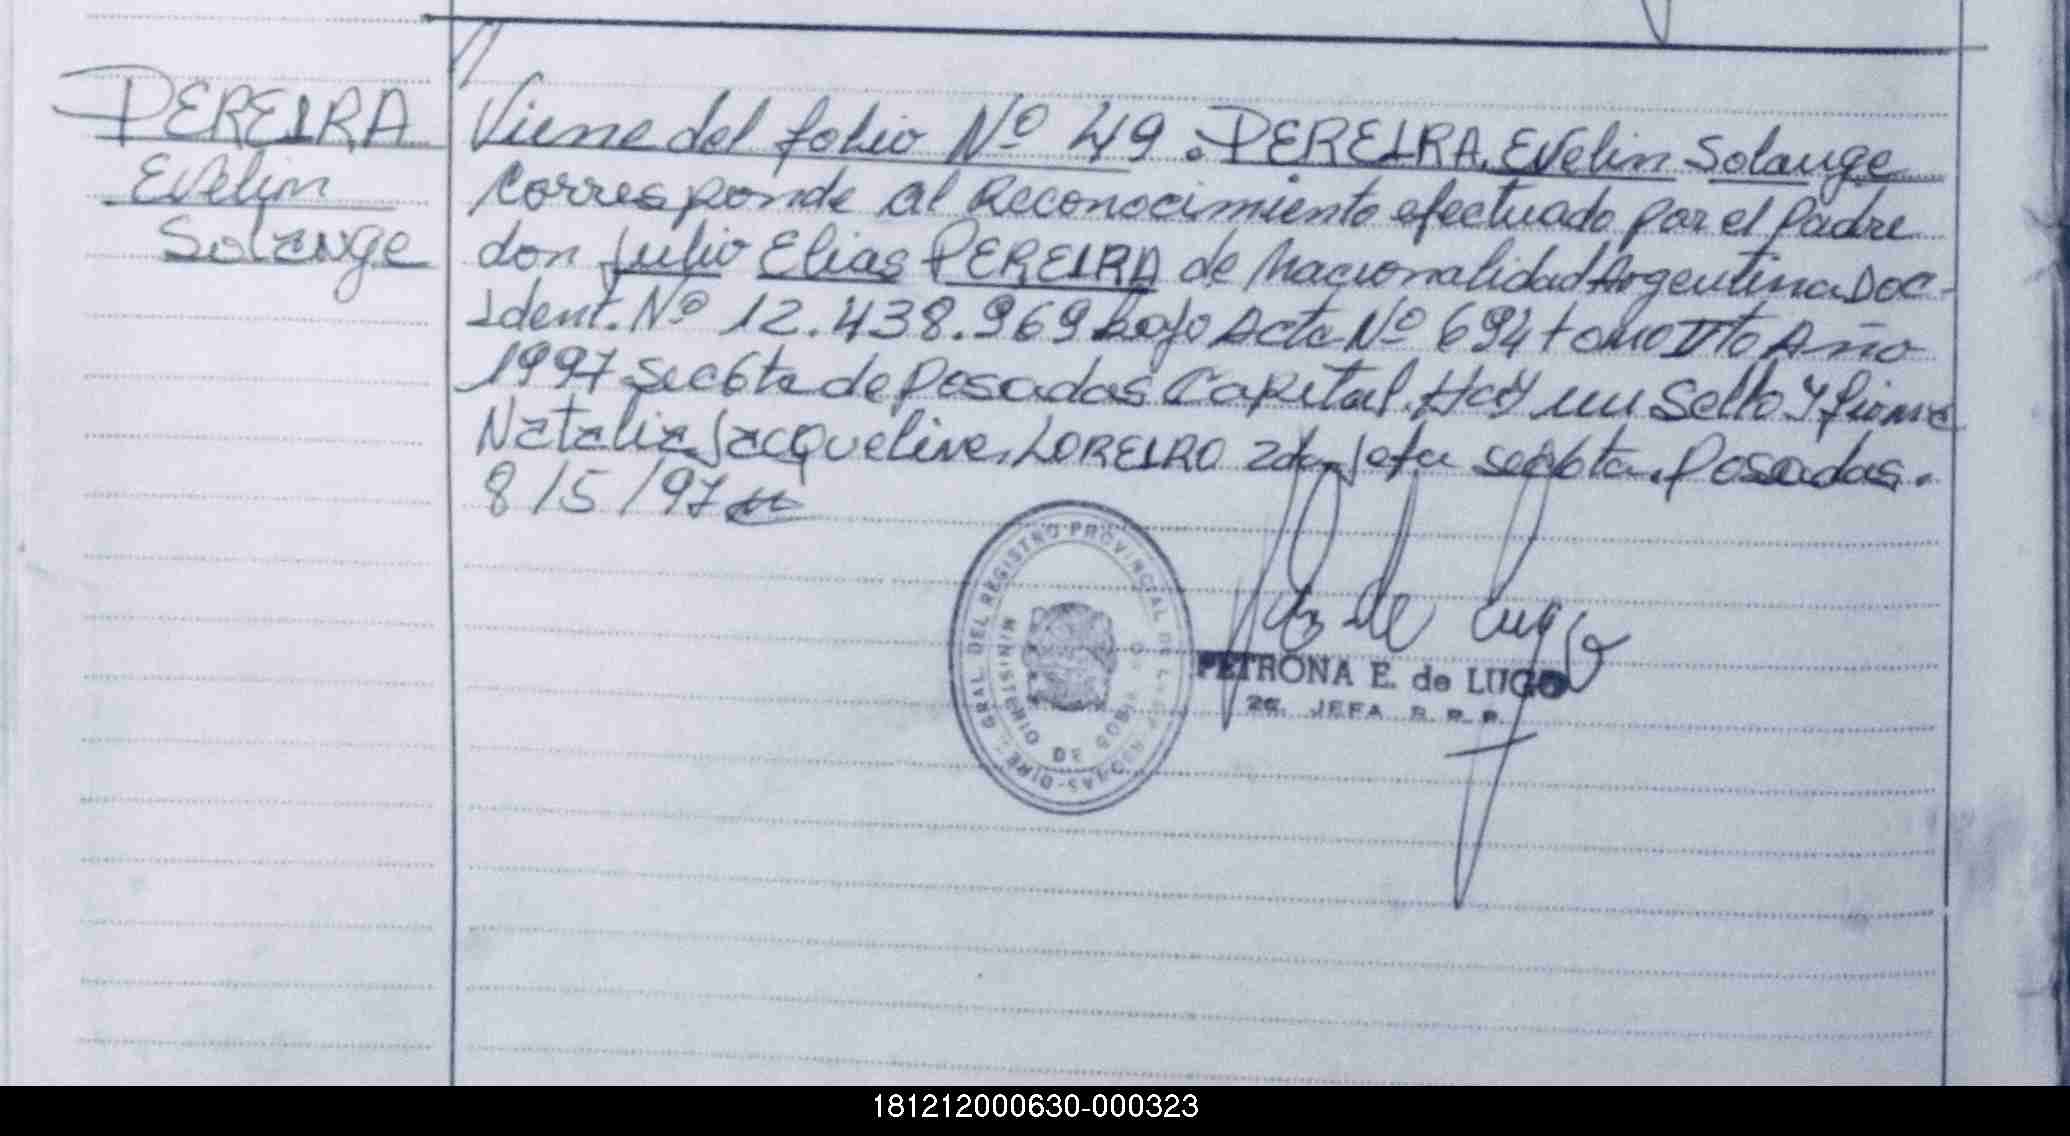 PEREIRA
Evelin
Solange
Viene del folio Nº 49. PEREIRA, Evelin Solange
Corresponde al Reconocimiento efectuado por el Padre
don Julio Elias PEREIRA de Nacionalidad Argentina Doc-
Ident. Nº 12.438.969 bajo Acta Nº 694 tomo Año
1997 Sec 6ta de Posadas Capital. Hay un Sello y firma
Natalia Jacqueline LOREIRO 2da Jefa sec 6ta. Posadas.
8/5/97
DIREC. GRAL. DEL REGISTRO PROVINCIAL DE LAS PERSONAS
MINISTERIO DE GOBIERNO
PETRONA E. de LUGO
2E. JEFA R. P. P.
181212000630-000323